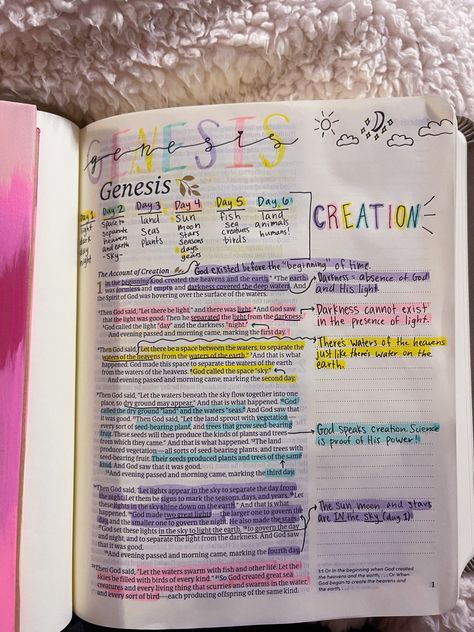 GENESIS
genesis
Genesis
Day 1
light
dark
day
night
Day 2
space to
separate
heaven
and earth
-sky-
Day 3
land
seas
plants
Day 4
sun
moon
stars
seasons
days
years
Day 5
fish
sea
creatures
birds
Day 6
land
animals
humans!
CREATION
The Account of Creation
God existed before the "beginning" of time.
1 In the beginning God created the heavens and the earth. ²The earth
was formless and empty, and darkness covered the deep waters. And
the Spirit of God was hovering over the surface of the waters.
Darkness = absence of God
and His light.
³Then God said, "Let there be light," and there was light. ⁴And God saw
that the light was good. Then he separated the light from the darkness.
⁵God called the light "day" and the darkness "night."
And evening passed and morning came, marking the first day.
Darkness cannot exist
in the presence of light.
⁶Then God said, "Let there be a space between the waters, to separate the
waters of the heavens from the waters of the earth." ⁷And that is what
happened. God made this space to separate the waters of the earth
from the waters of the heavens. ⁸God called the space "sky."
And evening passed and morning came, marking the second day.
There's waters of the heavens
just like there's water on the
earth.
⁹Then God said, "Let the waters beneath the sky flow together into one
place, so dry ground may appear." And that is what happened. ¹⁰God
called the dry ground "land" and the waters "seas." And God saw that
it was good. ¹¹Then God said, "Let the land sprout with vegetation—
every sort of seed-bearing plant, and trees that grow seed-bearing
fruit. These seeds will then produce the kinds of plants and trees
from which they came." And that is what happened. ¹²The land
produced vegetation—all sorts of seed-bearing plants, and trees with
seed-bearing fruit. Their seeds produced plants and trees of the same
kind. And God saw that it was good.
¹³And evening passed and morning came, marking the third day.
God speaks creation. Science
is proof of His power!
¹⁴Then God said, "Let lights appear in the sky to separate the day from
the night. Let them be signs to mark the seasons, days, and years. ¹⁵Let
these lights in the sky shine down on the earth." And that is what
happened. ¹⁶God made two great lights—the larger one to govern the
day, and the smaller one to govern the night. He also made the stars.
¹⁷God set these lights in the sky to light the earth, ¹⁸to govern the day
and night, and to separate the light from the darkness. And God saw
that it was good.
¹⁹And evening passed and morning came, marking the fourth day.
The sun, moon and stars
are IN the sky
²⁰Then God said, "Let the waters swarm with fish and other life. Let the
skies be filled with birds of every kind." ²¹So God created great sea
creatures and every living thing that scurries and swarms in the water,
and every sort of bird—each producing offspring of the same kind.
1:1 Or In the beginning when God created the
heavens and the earth, . . . Or When
God began to create the heavens and
the earth, . . .
1